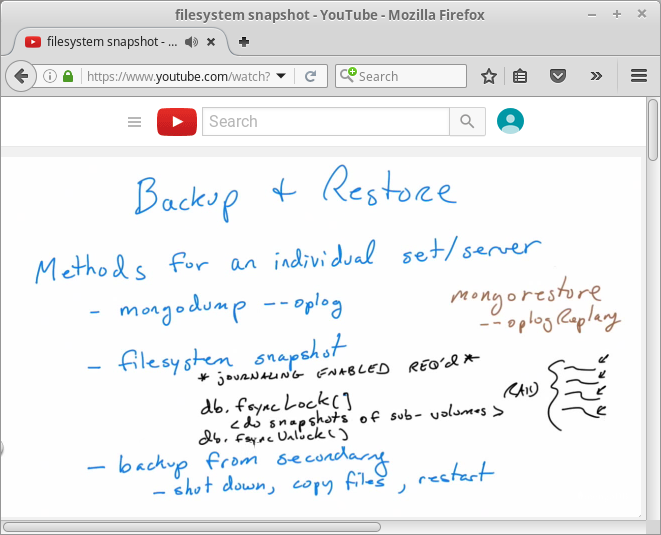 filesystem snapshot - YouTube - Mozilla Firefox
filesystem snapshot - ...
https://www.youtube.com/watch?
Search
Search
Backup + Restore
Methods for an individual set/server
- mongodump --oplog
mongorestore
--oplogReplay
- filesystem snapshot
* JOURNALING ENABLED REQ'd *
db.fsyncLock()
<do snapshots of sub-volumes>
(RAID)
db.fsyncUnlock()
- backup from secondary
- shut down, copy files, restart